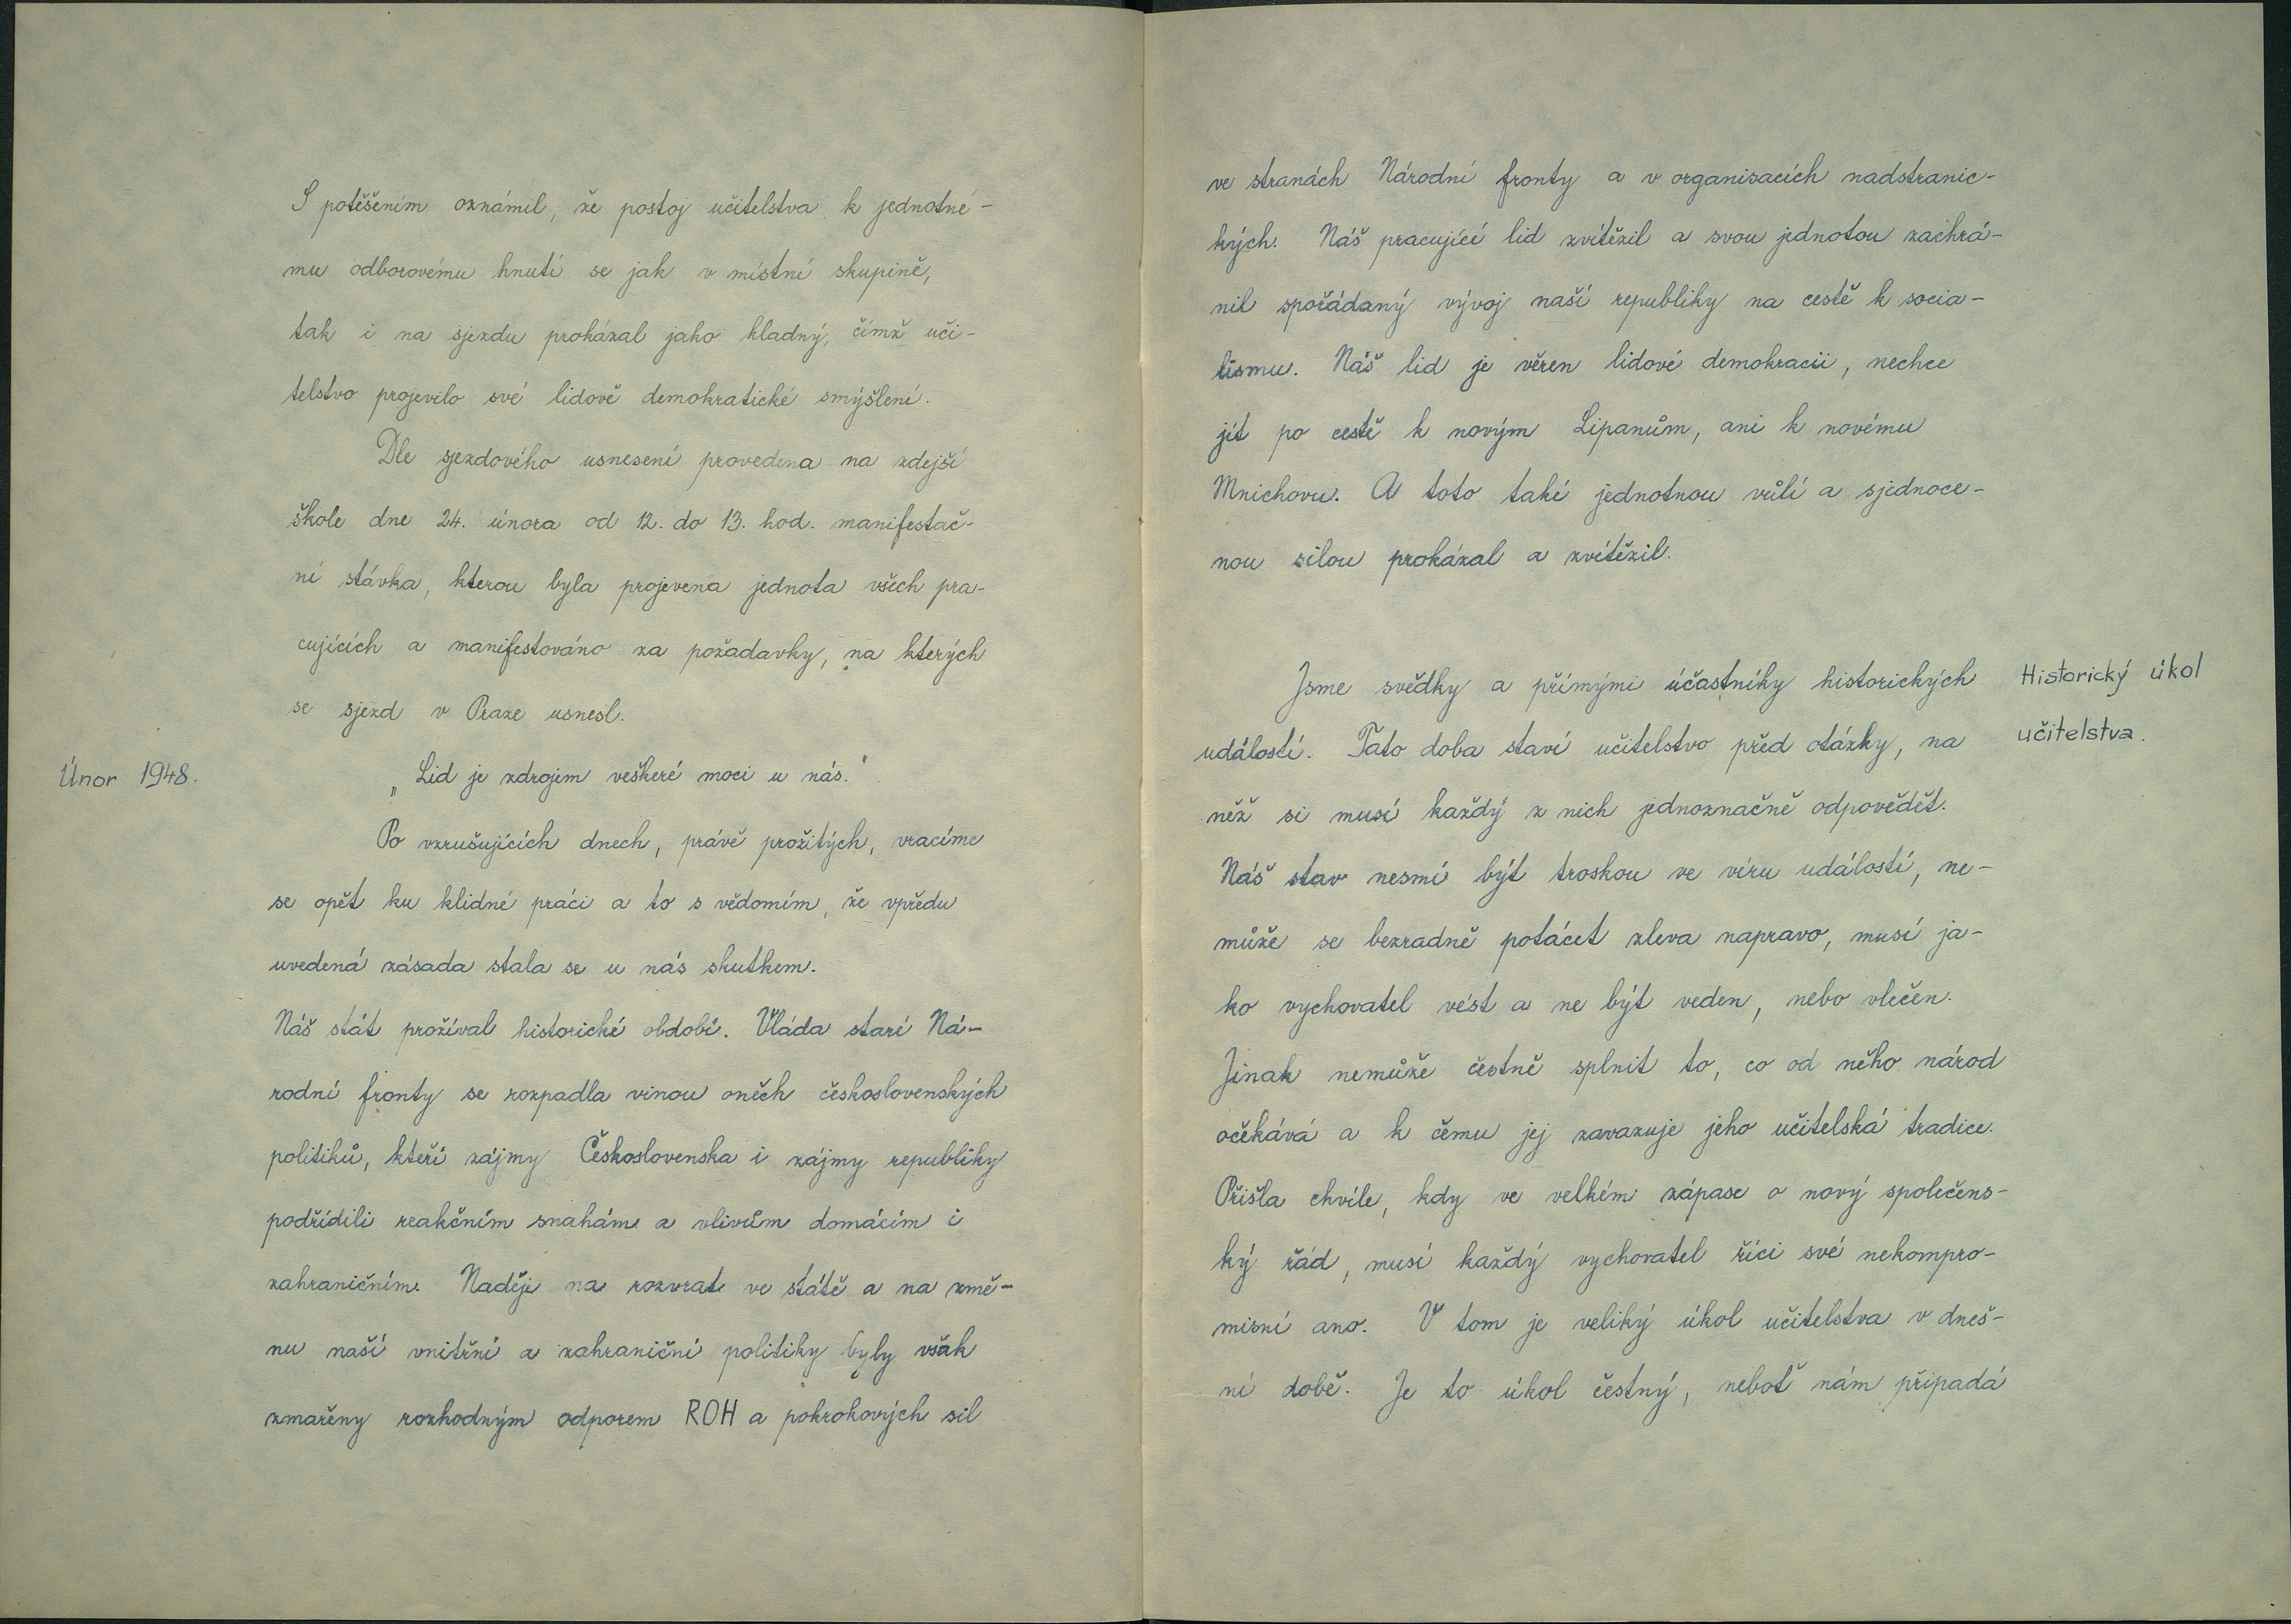 S potěšením oznámil, že postoj učitelstva k jednotné-
mu odborovému hnutí se jak v místní skupině,
tak i na sjezdu prokázal jako kladný, čímž uči-
telstvo projevilo své lidově demokratické smýšlení.
Dle sjezdového usnesení provedena na zdejší
škole dne 24. února od 12. do 13. hod. manifestač-
ní stávka, kterou byla projevena jednota všech pra-
cujících a manifestováno za požadavky, na kterých
se sjezd v Praze usnesl.
Únor 1948.
„Lid je zdrojem veškeré moci u nás."
Po vzrušujících dnech, právě prožitých, vracíme
se opět ku klidné práci a to s vědomím, že vpředu
uvedená zásada stala se u nás skutkem.
Náš stát prožíval historické období. Vláda staré Ná-
rodní fronty se rozpadla vinou oněch československých
politiků, kteří zájmy Československa i zájmy republiky
podřídili reakčním snahám a vlivům domácím i
zahraničním. Naděje na rozvrat ve státě a na změ-
nu naší vnitřní a zahraniční politiky byly však
zmařeny rozhodným odporem ROH a pokrokových sil
ve stranách Národní fronty a v organisacích nadstranic-
kých. Náš pracující lid zvítězil a svou jednotou zachrá-
nil spořádaný vývoj naší republiky na cestě k socia-
lismu. Náš lid je věren lidové demokracii, nechce
jít po cestě k novým Lipanům, ani k novému
Mnichovu. A toto také jednotnou vůlí a sjednoce-
nou silou prokázal a zvítězil.
Historický úkol
učitelstva.
Jsme svědky a přímými účastníky historických
událostí. Tato doba staví učitelstvo před otázky, na
něž si musí každý z nich jednoznačně odpovědět.
Náš stav nesmí být troskou ve víru událostí, ne-
může se bezradně potácet zleva napravo, musí ja-
ko vychovatel vést a ne být veden, nebo vlečen.
Jinak nemůže čestně splnit to, co od něho národ
očekává a k čemu jej zavazuje jeho učitelská tradice.
Přišla chvíle, kdy ve velkém zápase o nový společens-
ký řád, musí každý vychovatel říci své nekompro-
misní ano. V tom je veliký úkol učitelstva v dneš-
ní době. Je to úkol čestný, neboť nám připadá